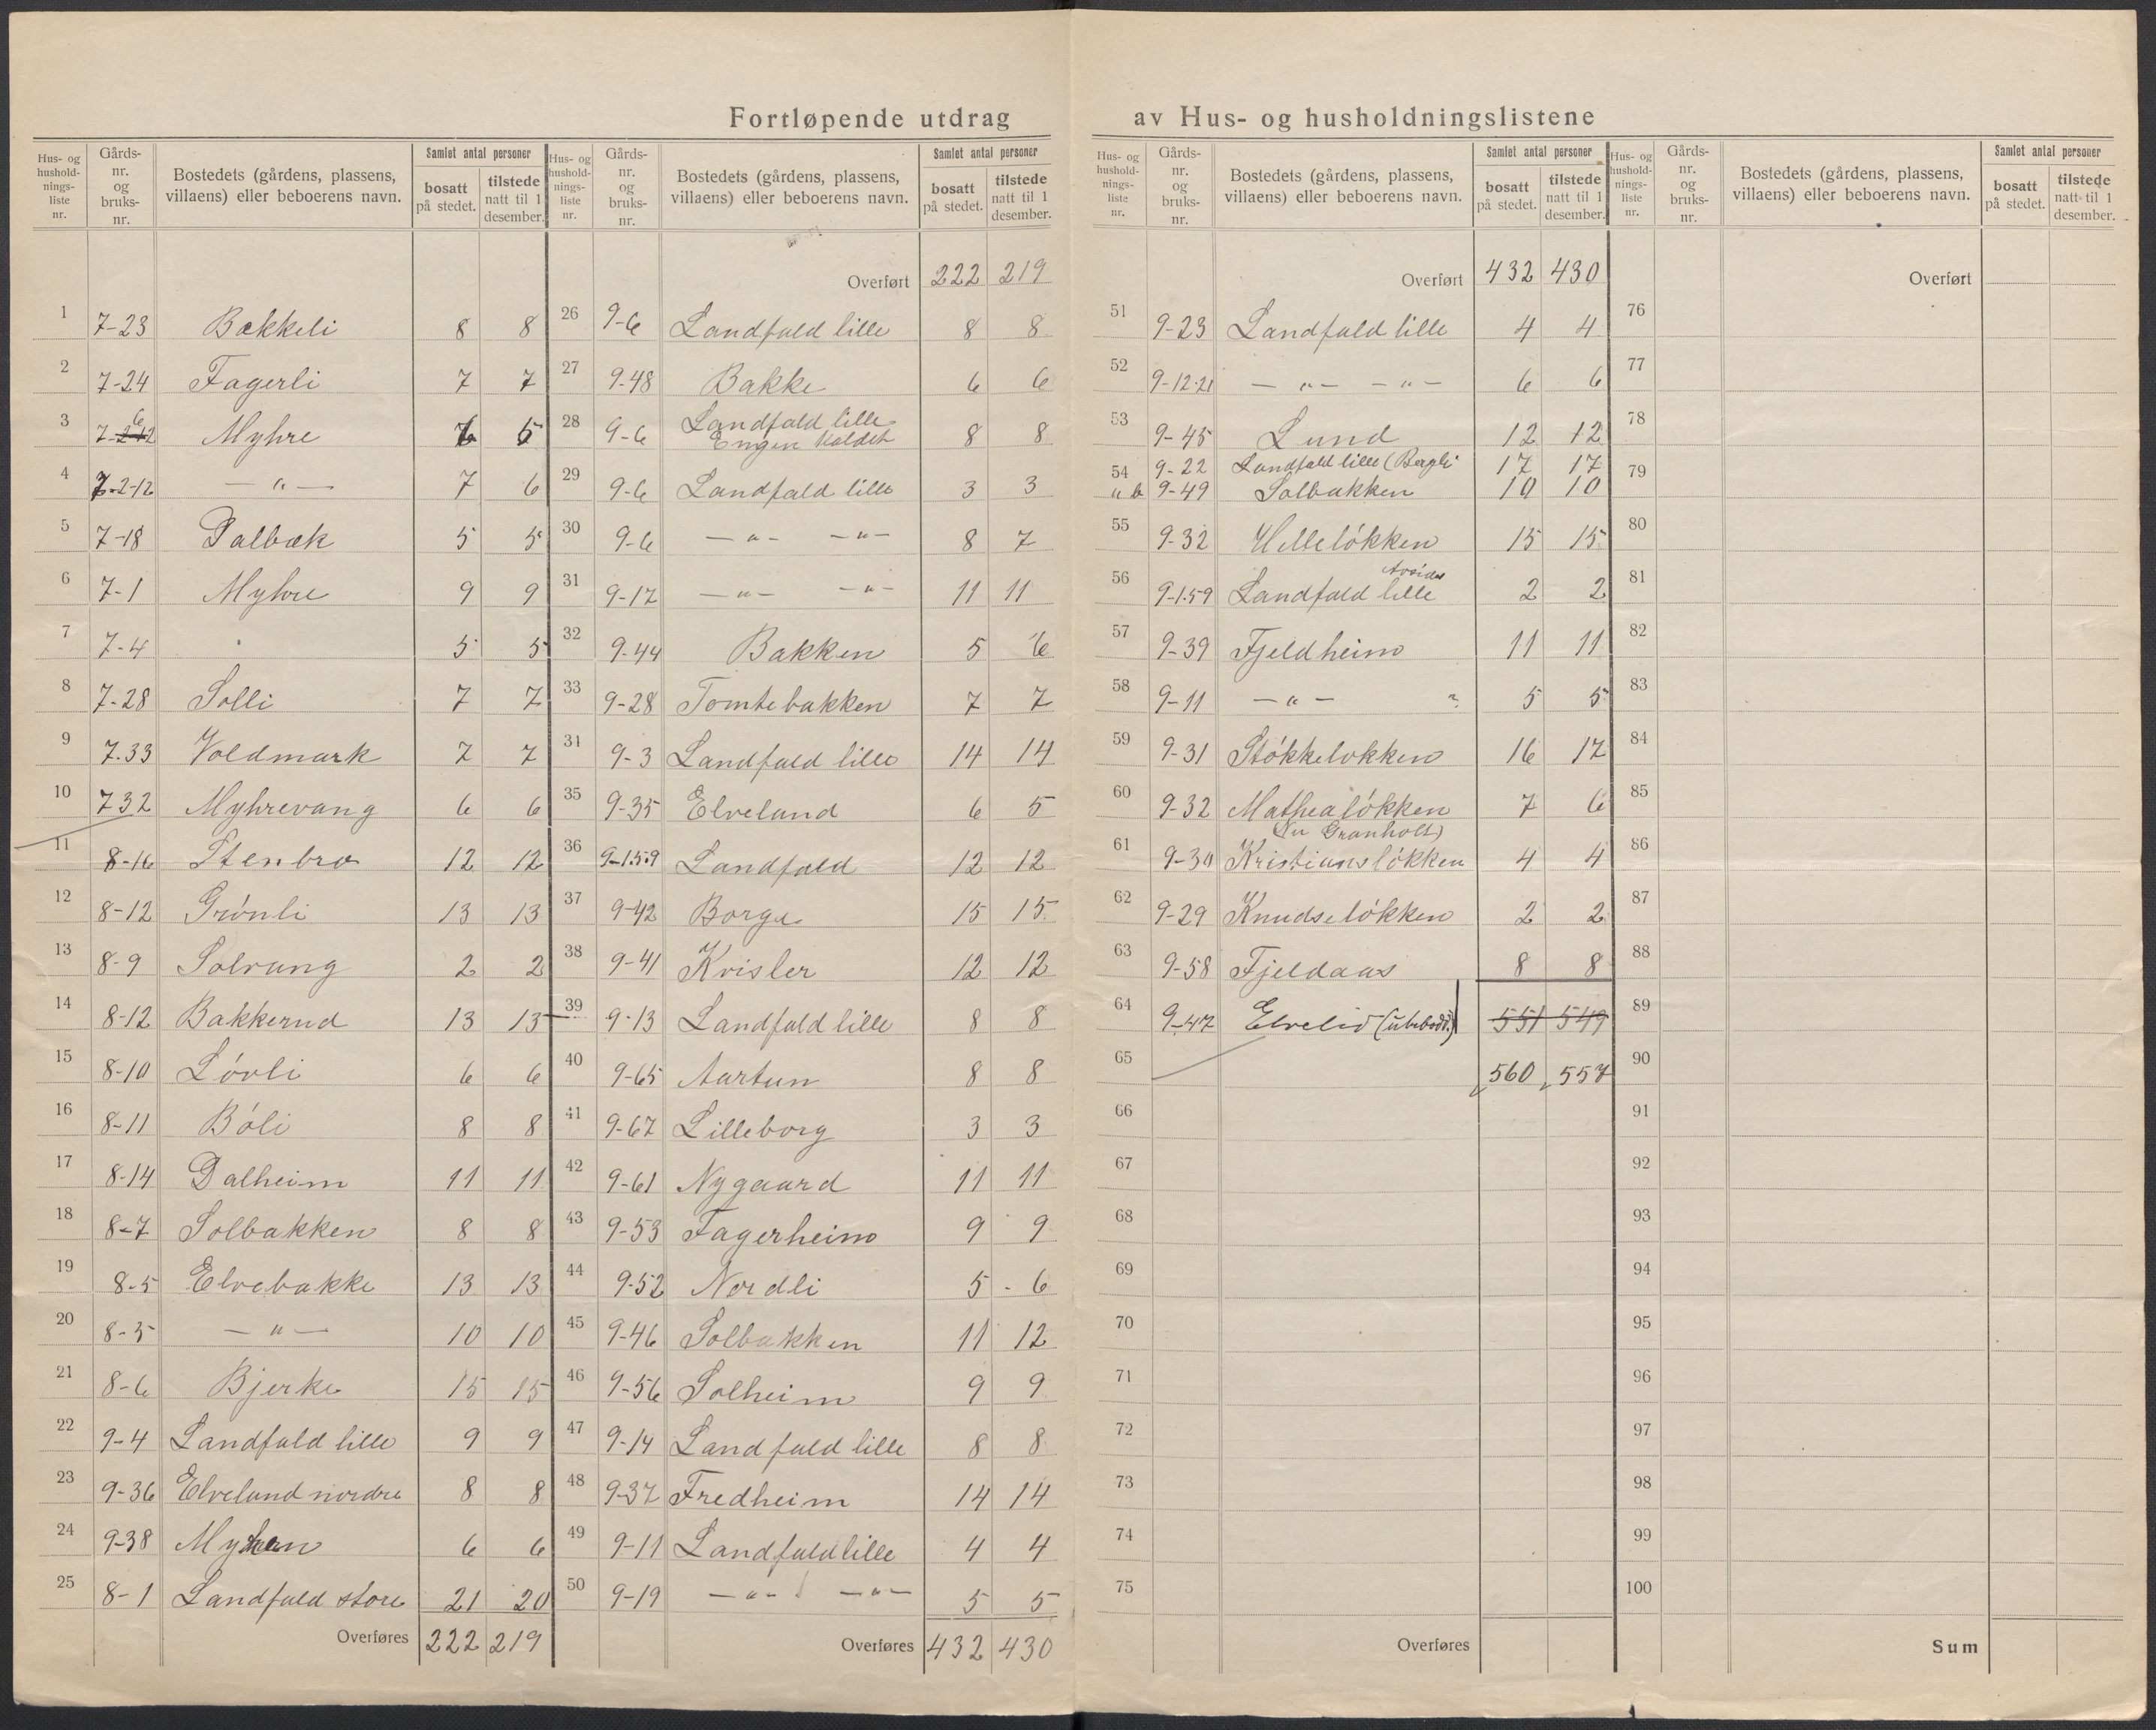 Fortløpende utdrag av Hus- og husholdningslistene
Hus- og hushold-nings-liste nr. Gårds-nr. og bruks-nr. Bostedets (gårdens, plassens, villaens) eller beboerens navn. Samlet antal personer bosatt på stedet. tilstede natt til 1 desember.
1 7-23 Bækkeli 8 8
2 7-24 Fagerli 7 7
3 7-2-12 6 Myhre 6 5
4 7-2-12 — " — 7 6
5 7-18 Dalbæk 5 5
6 7-1 Myhre 9 9
7 7-4 " 5 5
8 7-28 Solli 7 7
9 7.33 Voldmark 7 7
10 732 Myhrevang 6 6
11 8-16 Stenbro 12 12
12 8-12 Grönli 13 13
13 8-9 Solvang 2 2
14 8-12 Bakkerud 13 13
15 8-10 Lövli 6 6
16 8-11 Böli 8 8
17 8-14 Dalheim 11 11
18 8-7 Solbakken 8 8
19 8-5 Elvebakke 13 13
20 8-5 — " — 10 10
21 8-6 Bjerke 15 15
22 9-4 Landfald lille 9 9
23 9-36 Elvelund nordre 8 8
24 9-38 Myhren 6 6
25 8-1 Landfald store 21 20
Overføres 222 219
Hus- og hushold-nings-liste nr. Gårds-nr. og bruks-nr. Bostedets (gårdens, plassens, villaens) eller beboerens navn. Samlet antal personer bosatt på stedet. tilstede natt til 1 desember.
Overført 222 219
26 9-6 Landfald lille 8 8
27 9-48 Bakke 6 6
28 9-6 Landfald lille
Engen kaldet 8 8
29 9-6 Landfald lille 3 3
30 9-6 — " — — " — 8 7
31 9-17 — " — — " — 11 11
32 9-44 Bakken 5 6
33 9-28 Tomtebakken 7 7
34 9-3 Landfald lille 14 14
35 9-35 Elvelund 6 5
36 9-1.5.9 Landfald 12 12
37 9-42 Borge 15 15
38 9-41 Kvisler 12 12
39 9-13 Landfald lille 8 8
40 9-65 Aartun 8 8
41 9-67 Lilleborg 3 3
42 9-61 Nygaard 11 11
43 9-53 Fagerheim 9 9
44 9-52 Nordli 5 - 6
45 9-46 Solbakken 11 12
46 9-56 Solheim 9 9
47 9-14 Landfald lille 8 8
48 9-37 Fredheim 14 14
49 9-11 Landfald lille 4 4
50 9-19 — " — — " — 5 5
Overføres 432 430
Hus- og hushold-nings-liste nr. Gårds-nr. og bruks-nr. Bostedets (gårdens, plassens, villaens) eller beboerens navn. Samlet antal personer bosatt på stedet. tilstede natt til 1 desember.
Overført 432 430
51 9-23 Landfald lille 4 4
52 9-12.21 — " — — " — 6 6
53 9-45 Lund 12 12
54 9-22 Landfald lille (Bergli 17 17
" b 9-49 Solbakken 10 10
55 9-32 Helleløkken 15 15
56 9-1.5.9 Landfald lille 2 2
57 9-39 Fjeldheim 11 11
58 9-11 — " — ? 5 5
59 9-31 Stökkeløkken 16 17
60 9-32 Mathealökken 7 6
(nu Granholt)
61 9-30 Kristianslökken 4 4
62 9-29 Knudselökken 2 2
63 9-58 Fjeldaas 8 8
64 9-47 Elvelid (ubebodd.) 551 549
65 560 557
66
67
68
69
70
71
72
73
74
75
Overføres
Hus- og hushold-nings-liste nr. Gårds-nr. og bruks-nr. Bostedets (gårdens, plassens, villaens) eller beboerens navn. Samlet antal personer bosatt på stedet. tilstede natt til 1 desember.
Overført
76
77
78
79
80
81
82
83
84
85
86
87
88
89
90
91
92
93
94
95
96
97
98
99
100
Sum